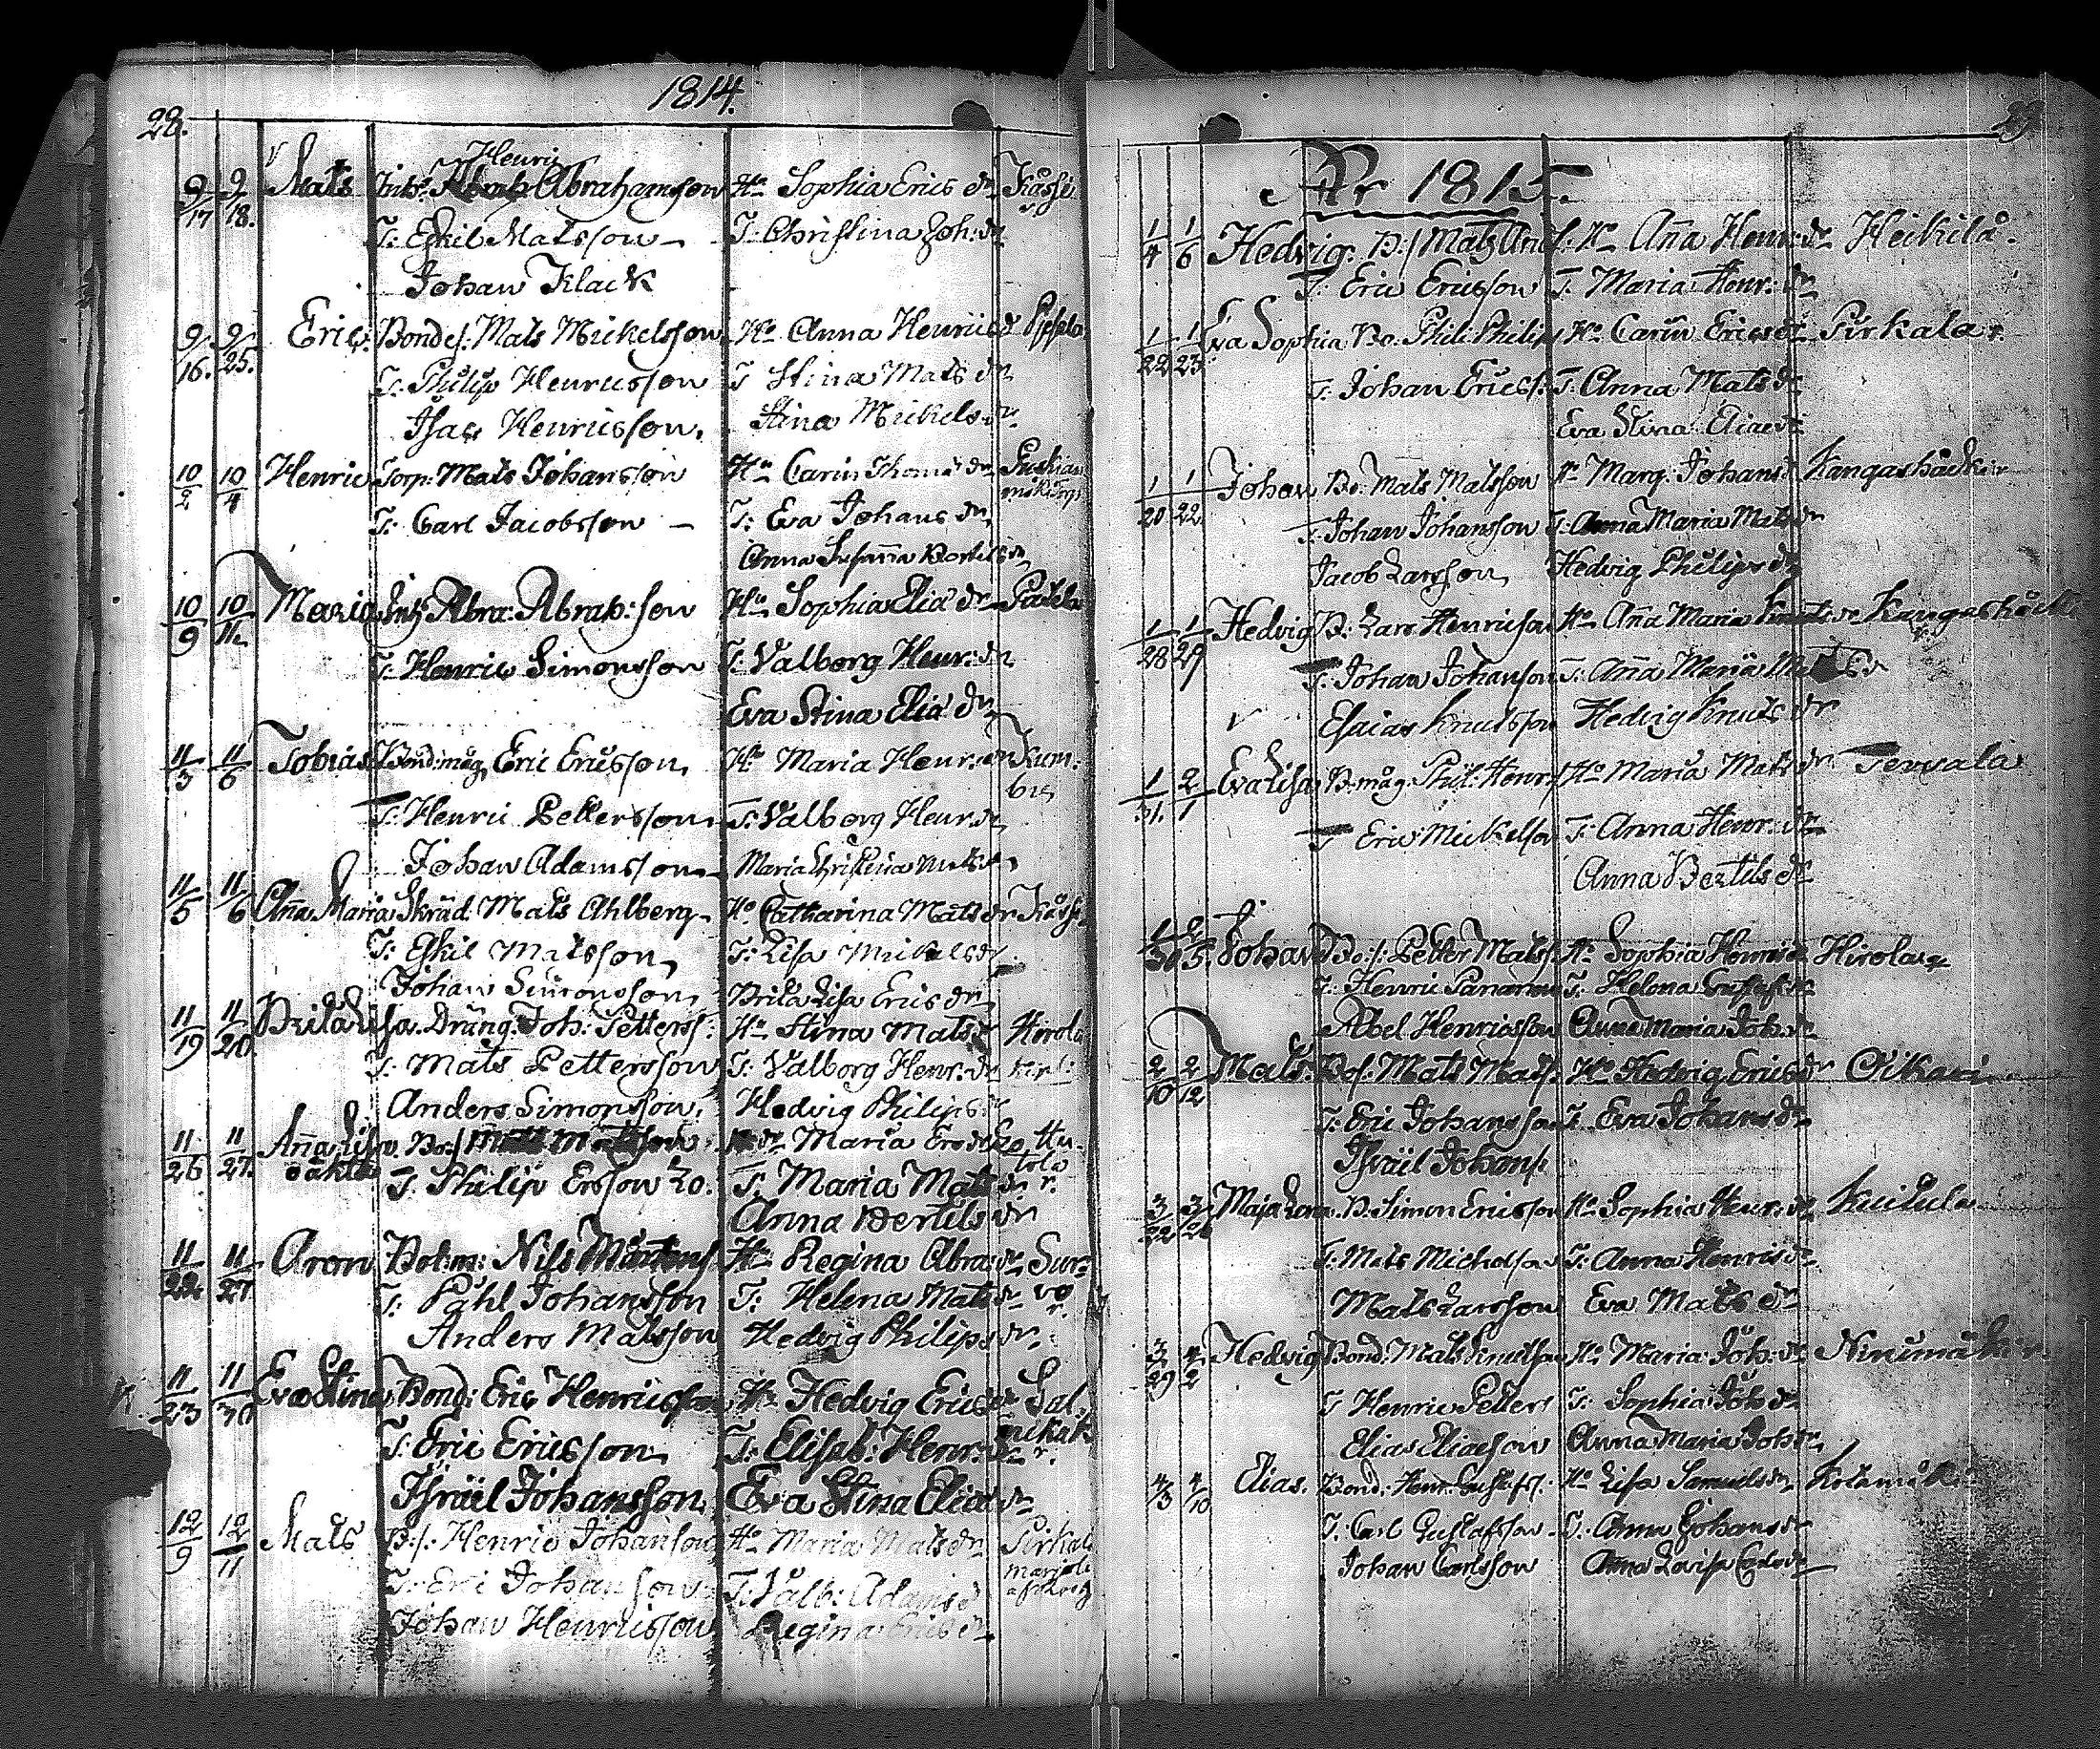 1814.
28.
Henric
9/17 9/18. Mats Inhs. Abrahamsson Hu Sophia Erics dr Kåssi
T: Eskil Matsson T: Christina Joh: dr
Johan Klack
9/16. 9/25. Eric. Bondes: Mats Mickelsson Hu Anna Henrics dr
T: Philip Henricsson T Stina Mats dr
Isac Henricsson. Stina Mickels dr
10/2 10/4 Henric Torp: Mats Johansson Hu Carin Thomas dr
T: Carl Jacobsson T: Eva Johans dr
Anna Susanna Bertils dr
10/9 10/11. Maria Inhs Abra: Abrah:son Hu Sophia Elia dr
T: Henric Simonsson T: Valborg Henr: dr
Eva Stina Elia dr
11/3 11/6 Tobias Bond:måg Eric Ericsson Hu Maria Henr: dr Kum:
T: Henric Pettersson T: Valborg Henr. dr
Johan Adamsson Maria Christina Mats dr
11/5 11/6 Aña Maria Skräd. Mats Ahlberg Hu Catharina Mats dr Kåssi
T: Eskil Matsson T: Lisa Mickels dr
Johan Simonsson Brita Lisa Erics dr
11/19 11/20. Brita Lisa. Dräng. Joh: Petterss: Hu Stina Mats dr Hirola
T: Mats Pettersson T: Valborg Henr: dr
Anders Simonsson. Hedvig Philips dr
11/26 11/27. Aña Lisa Bos: Maria Ers dr
oäkta T. Philip Ersson T. Maria Mats dr
Anna Bertils dr
11/22 11/27 Aron Bohm: Nils Mårtens: Hu Regina Abra dr Sur:
T: Påhl Johansson T: Helena Mats dr vo
Anders Matsson Hedvig Philips dr
11/23 11/30 Eva Stina Bond: Eric Henricsson Hu Hedvig Erics dr Sal
T: Eric Ericsson T: Elisab: Henr: dr
Israel Johansson Eva Stina Elia dr
12/9 12/11 Mats B:s: Henric Johansson Hu Maria Mats dr Pirkala
T: Eric Johansson T: Valb: Adams dr
Johan Henricsson Regina Erics dr
29
År 1815.
1/4 1/6 Hedvig. B:s Mats And s: Hu Aña Henr: dr Heikilä.
T: Eric Ericsson T: Maria Henr: dr
1/22 1/23 Eva Sophia Bo. Phili Philips Hu Carin Erics dr Pirkala r
T: Johan Ericss: T: Anna Mats dr
Eva Stina Elias dr
1/20 1/22 Johan Bo: Mats Matsson Hu Marg: Johans d Kangashäcki r
T. Johan Johansson T: Anna Maria Mats dr
Jacob Larsson Hedvig Philips dr
1/28 1/29 Hedvig B: Lars Henricsson Hu Aña Maria Knuts dr Kangashäcki
T: Johan Johansson T: Aña Maria Mats dr
Esaias Knutsson Hedvig Knuts dr
1/31. 2/1 Eva Lisa B:måg: Phil: Henr:s Hu Maria Mats dr Tervala
T Eric Mickelsson T: Anna Henr: dr
Anna Bertils dr
1/30 2/5. Johan Bo:s: Petter Mats: Hu Sophia Henrics dr Hirola r
T: Henric Pananen T: Helena Gustafs dr
Abel Henricsson Anna Maria Joh: dr
2/10 2/12 Mats. Bos: Mats Mats: Hu Hedvig Erics dr Oikari
T: Eric Johansson T. Eva Johans dr
Israel Johans:
3/22 3/26 Maja Lena. B. Simon Ericsson Hu Sophia Henr: dr Kuitula
T: Mats Michelsson T: Anna Henrics dr
Mats Larsson Eva Mats dr
3/29 4/2 Hedvig Bond: Mats Knutsson Hu Maria Joh: dr Ninimäki r.
T Henric Petters T: Sophia Joh dr
Elias Eliasson Anna Maria Joh dr
4/3 4/10 Elias. Bond: Henr: Gustafs: Hu Lisa Samuels dr
T: Carl Gustafsson T: Anna Johans dr
Johan Carlsson Anna Lovisa Carls dr